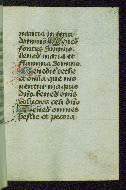 nantia in terra
domino Bened
fontes domino
Bened maria et
flumina domino
Benedic cethe
et omnia que mo
uentur in aquis
dno bened oms
volucres celi dno
Bened omnes
bestie et pecora